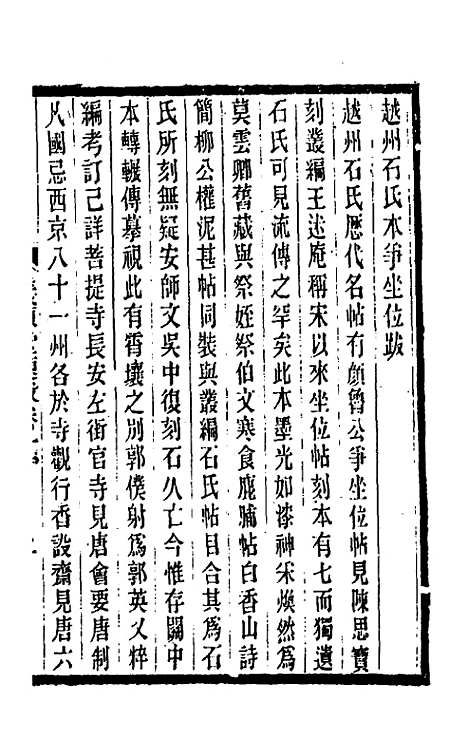 越州石氏本爭坐位跋
越州石氏歷代名帖有顏魯公爭坐位帖見陳思寶
刻叢編王述庵稱宋以來坐位帖刻本有七而獨遺
石氏可見流傳之罕矣此本墨光如漆神采煥然爲
莫雲卿舊藏與祭姪祭伯文寒食鹿脯帖白香山詩
簡柳公權泥甚帖同裝與叢編石氏帖目合其爲石
氏所刻無疑安師文吳中復刻石久亡今惟存關中
本轉輾傳摹視此有霄壤之別郭僕射爲郭英乂粹
編考訂已詳菩提寺長安左街官寺見唐會要唐制
凡國忌西京八十一州各於寺觀行香設齋見唐六